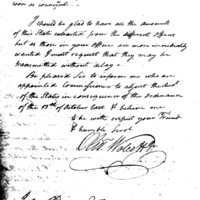 soon as convenient.
I should be glad to have all the accounts
of this State extracted from the different offices
but as those in your office are more immediately
wanted I must request that they may be
transmitted without delay.
Be pleased Sir to inform me who are
appointed Commissioners to adjust the
of the States in consequence of the Ordinance
of the 13th of October & believe me
to be with respect your Friend
& humble Servt
Oliv. Wolcott Jr